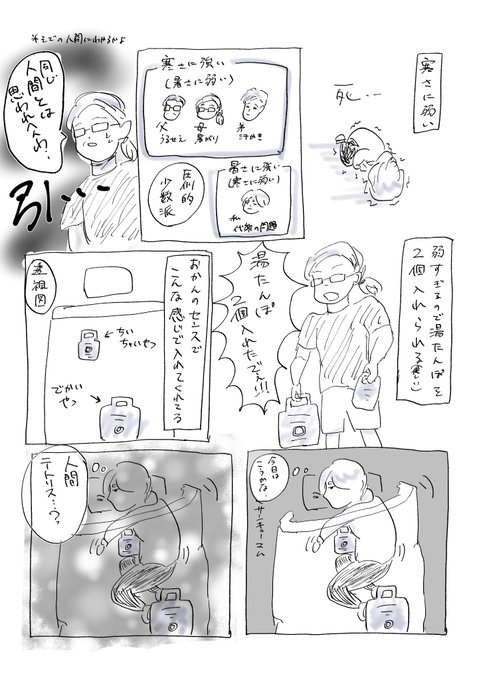 寒さに弱い
死…
寒さに強い
(暑さに弱い)
父
うるせえ
母
暑がり
弟
汗かき
暑さに強い
(寒さに弱い)
私
代謝の問題
圧倒的
少数派
同じ
人間とは
思われへんわ…
引…
弱すぎるので湯たんぽを
2個入れられる
湯たんぽ
2個入れたでぇ!!!
おかんのセンスで
こんな感じで入れてくれてる
透視図
ちい
ちゃいやつ
でかい
やつ
今日は
こうかな
サンキューマム
人間
テトリス…ウッ